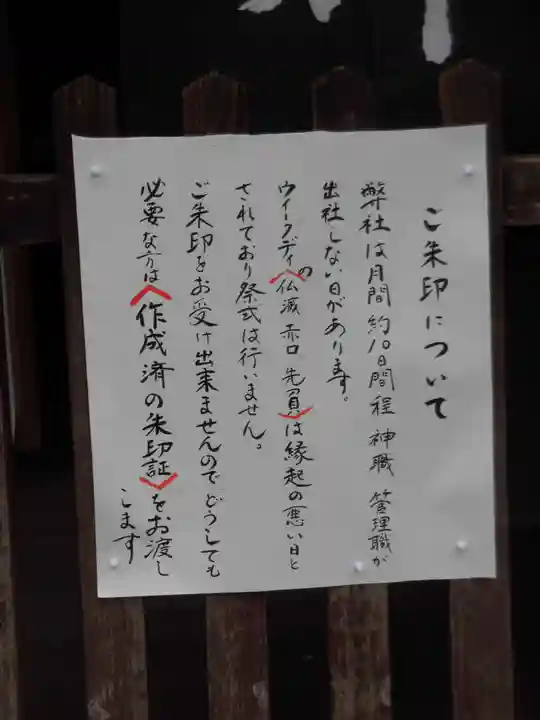 ご朱印について
弊社は月間約10日間程 神職 管理職が
出社しない日があります。
ウイークディの(仏滅 赤口 先負)は縁起の悪い日と
されており祭式は行いません。
ご朱印をお受け出来ませんのでどうしても
必要な方は(作成済の朱印証)をお渡し
します